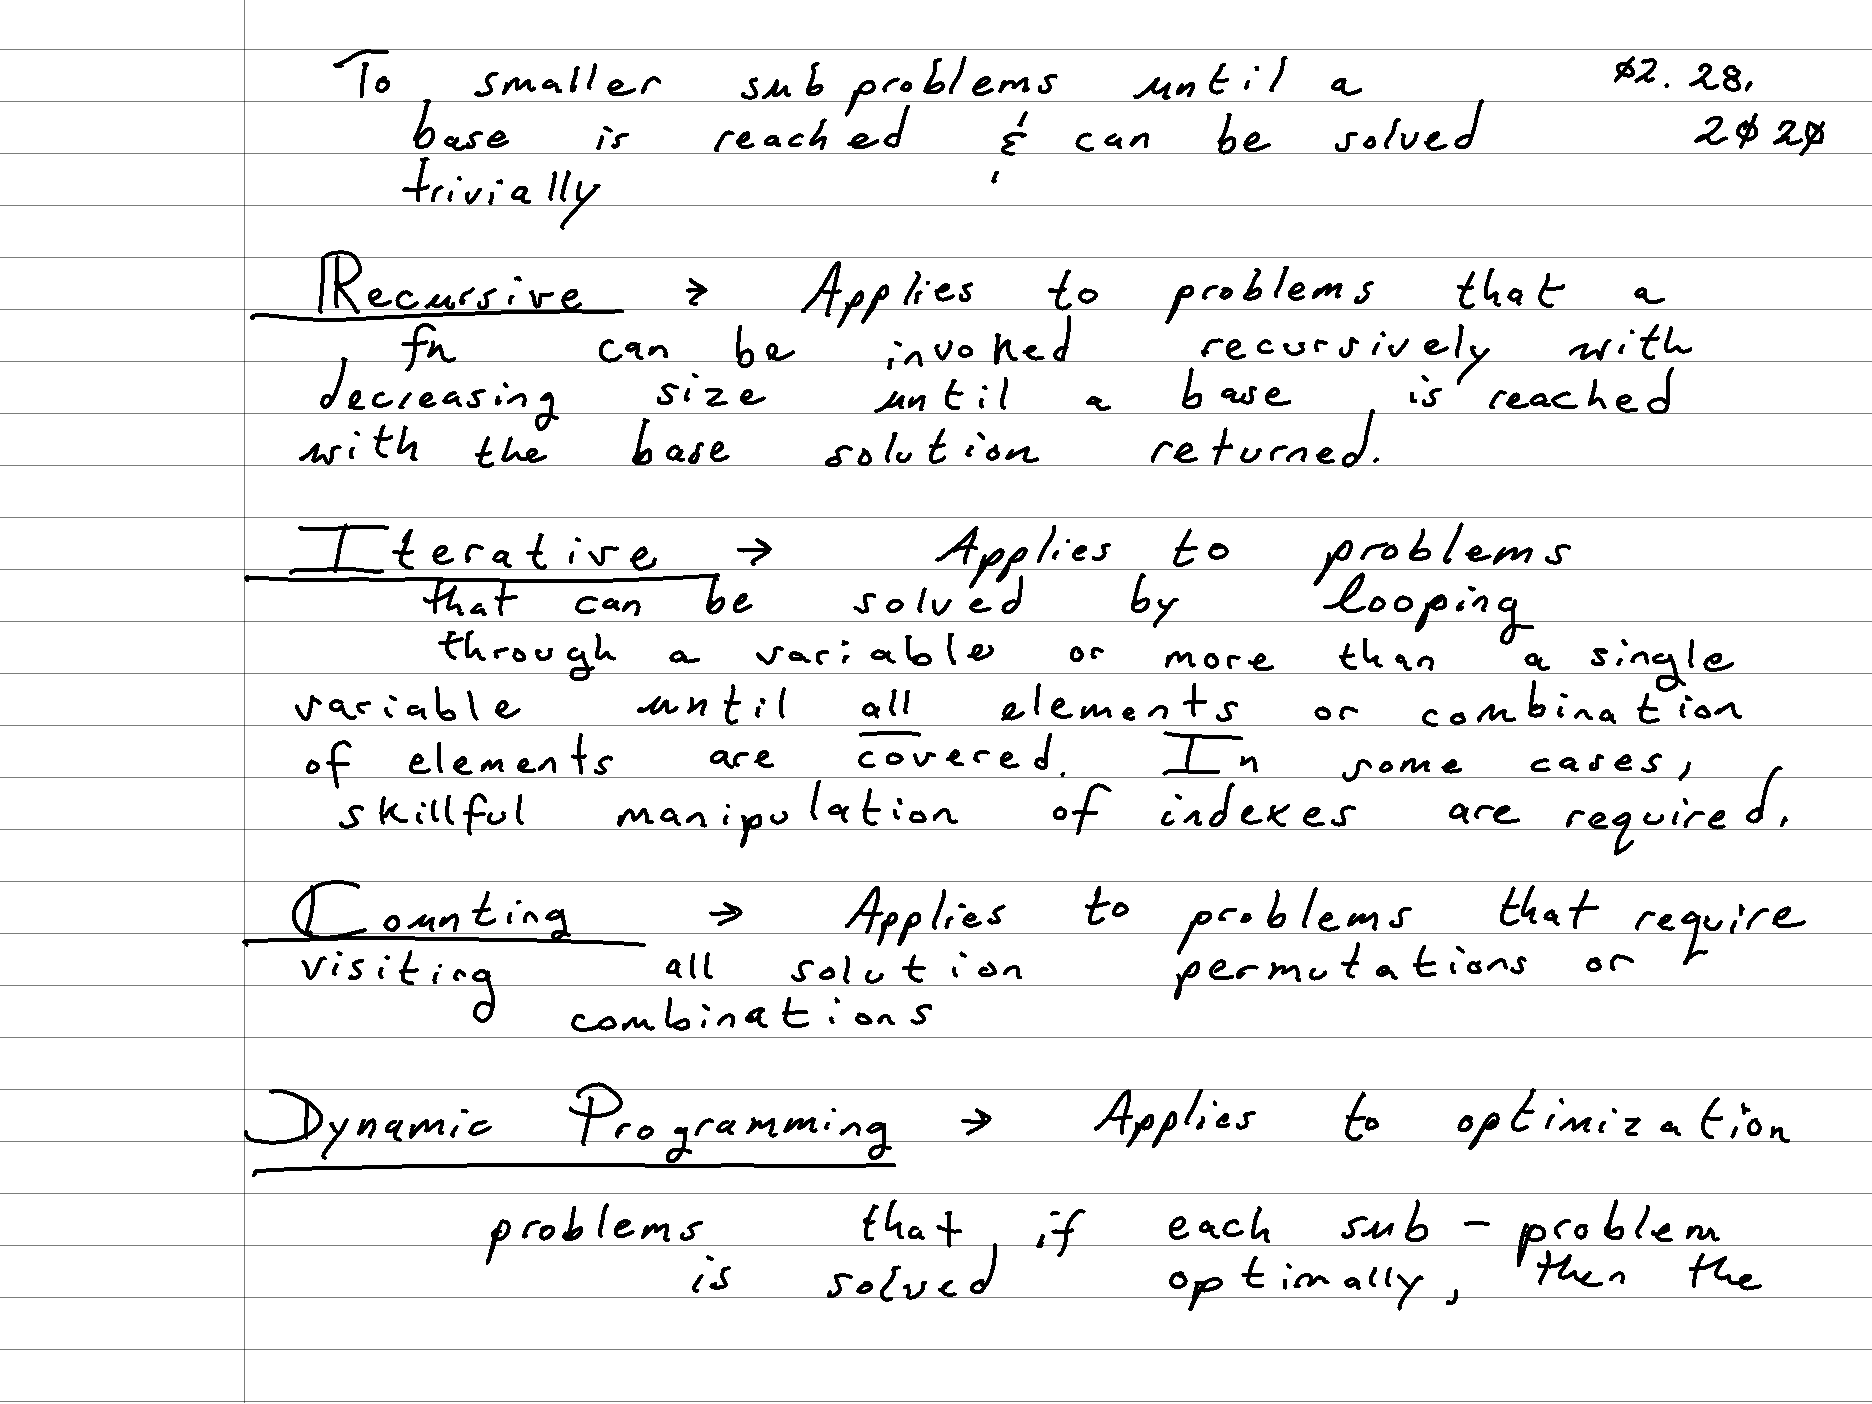 To smaller subproblems until a ø2. 28.
base is reached & can be solved 2ø2ø
trivially
Recursive → Applies to problems that a
fn can be invoked recursively with
decreasing size until a base is reached
with the base solution returned.
Iterative → Applies to problems
that can be solved by looping
through a variable or more than a single
variable until all elements or combination
of elements are covered. In some cases,
skillful manipulation of indexes are required.
Counting → Applies to problems that require
visiting all solution permutations or
combinations
Dynamic Programming → Applies to optimization
problems that if each sub-problem
is solved optimally, then the